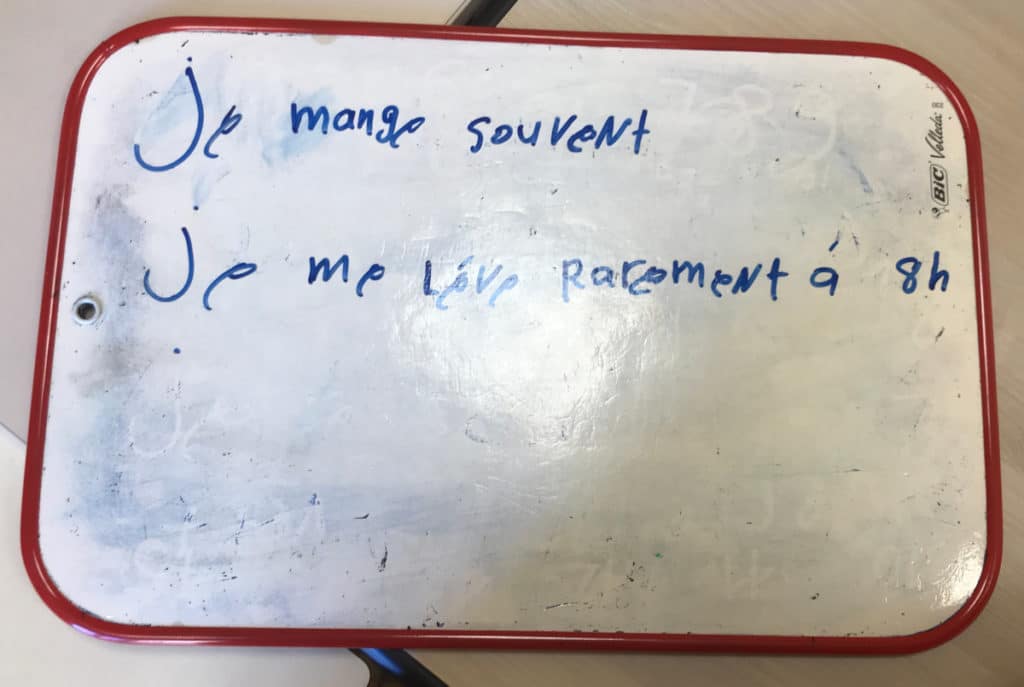 Je mange souvent
Je me léve Rarement à 8h
BIC Velleda